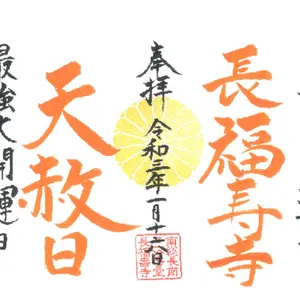 長福寿寺
奉拝 令和三年一月十六日
天赦日
最強大開運日